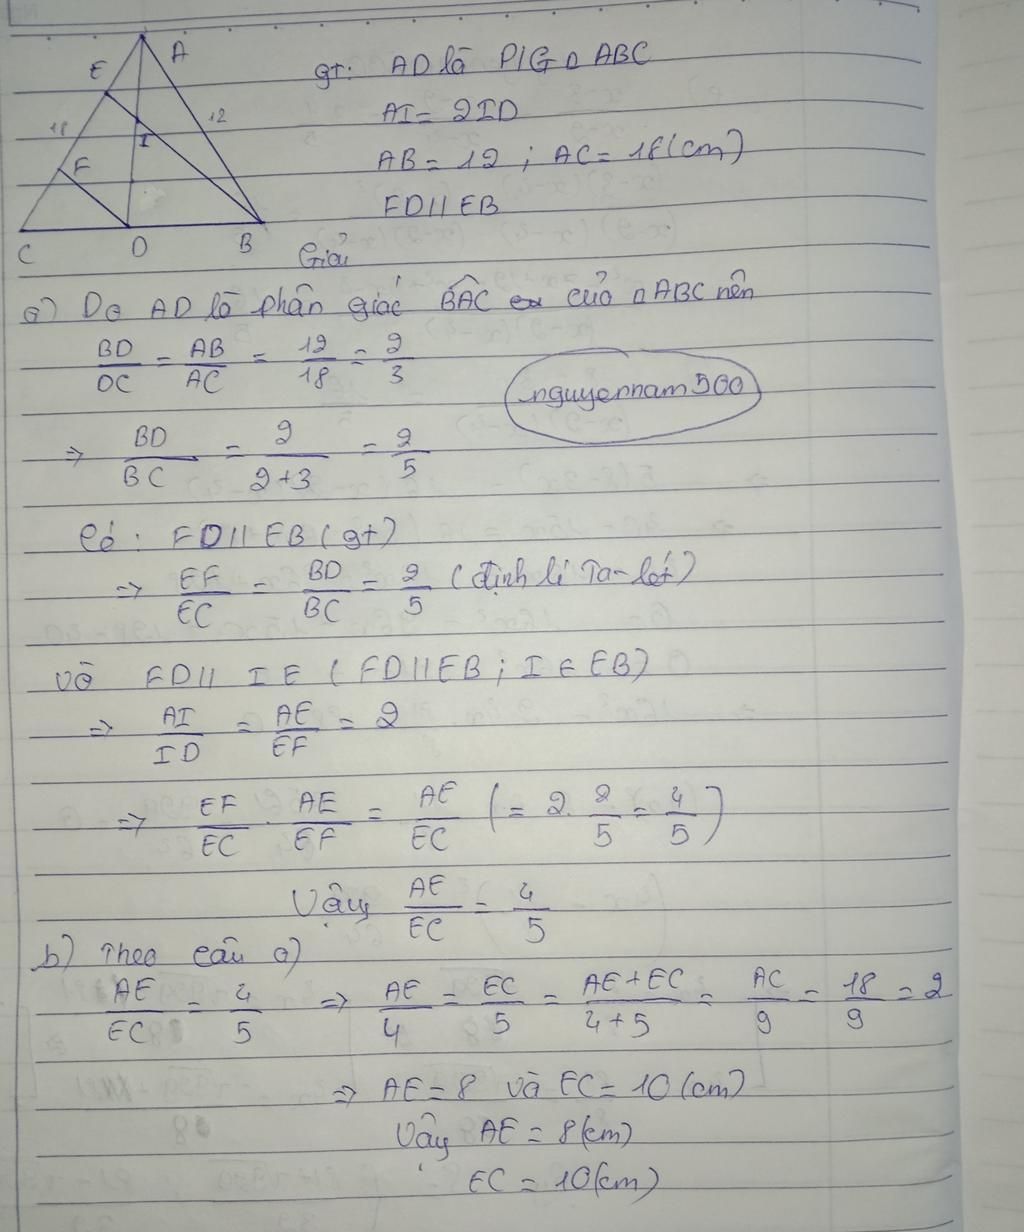 A
E
18
12
I
F
C
D
B
gt: AD là P/G △ABC
AI = 2ID
AB = 12 ; AC = 18 (cm)
FD // EB
Giải
a) Do AD là phân giác BÂC của △ABC nên
BD/DC = AB/AC = 12/18 = 2/3
nguyennam500
⇒ BD/BC = 2/(2+3) = 2/5
Có : FD // EB (gt)
⇒ EF/EC = BD/BC = 2/5 (định lí Ta-lét)
Và FD // IE (FD // EB ; I ∈ EB)
⇒ AI/ID = AE/EF = 2
⇒ EF/EC . AE/EF = AE/EC (= 2. 2/5 = 4/5)
Vậy AE/EC = 4/5
b) Theo câu a)
AE/EC = 4/5 ⇒ AE/4 = EC/5 = (AE+EC)/(4+5) = AC/9 = 18/9 = 2
⇒ AE = 8 và EC = 10 (cm)
Vậy AE = 8 (cm)
EC = 10 (cm)